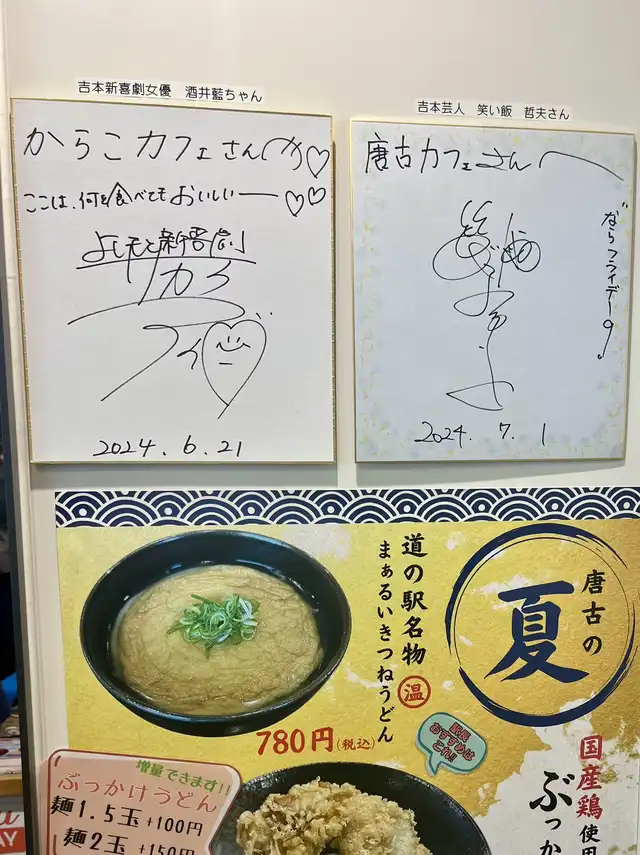 吉本新喜劇女優　酒井藍ちゃん
からこカフェさんへ♡
ここは、何を食べてもおいしいー♡♡
よしもと新喜劇
2024. 6. 21
吉本芸人　笑い飯　哲夫さん
唐古カフェさんへ
"ならフライデー9"
2024. 7. 1
唐古の
夏
道の駅名物
まぁるいきつねうどん
温
780円(税込)
駅長
おすすめは
これ!!
増量できます!!
ぶっかけうどん
麺1.5玉 +100円
麺2玉 +150円
国産鶏使用
ぶっか
AY